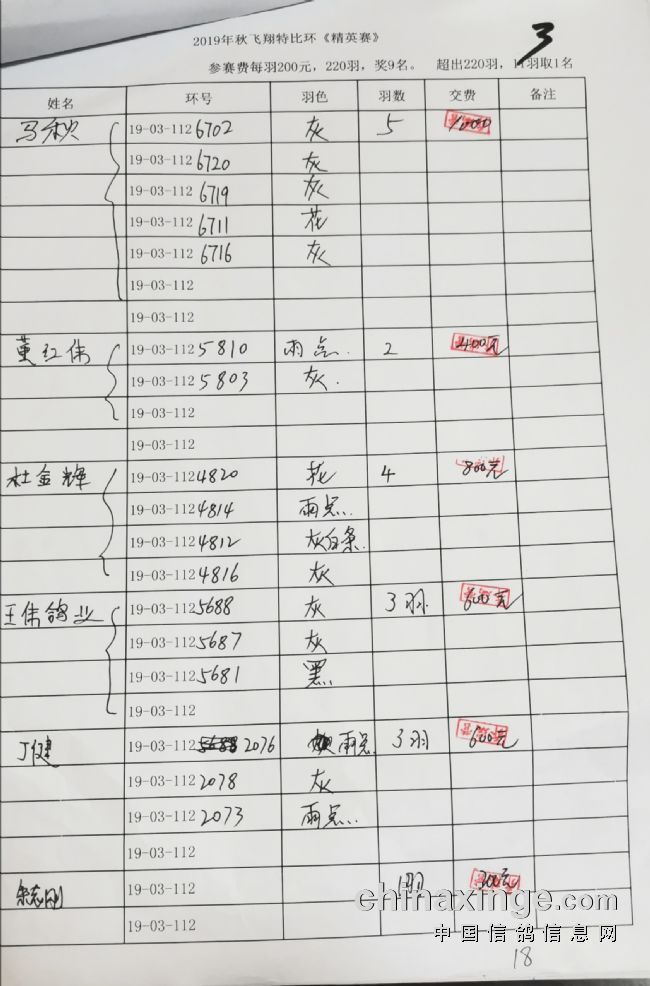 2019年秋飞翔特比环《精英赛》 3
参赛费每羽200元，220羽，奖9名。 超出220羽，11羽取1名
姓名 环号 羽色 羽数 交费 备注
马秋 19-03-112 6702 灰 5 1000
19-03-112 6720 灰
19-03-112 6719 灰
19-03-112 6711 花
19-03-112 6716 灰
19-03-112
19-03-112
董红伟 19-03-112 5810 雨点. 2 400元
19-03-112 5803 灰.
19-03-112
19-03-112
杜金辉 19-03-112 4820 花 4 800元
19-03-112 4814 雨点..
19-03-112 4812 灰白条.
19-03-112 4816 灰
王伟鸽业 19-03-112 5688 灰 3羽. 600元
19-03-112 5687 灰
19-03-112 5681 黑.
19-03-112
丁健 19-03-112 2076 雨点 3羽 600元
19-03-112 2078 灰
19-03-112 2073 雨点..
19-03-112
志刚 19-03-112 1羽
19-03-112
chinaxinge.com
中国信鸽信息网
18